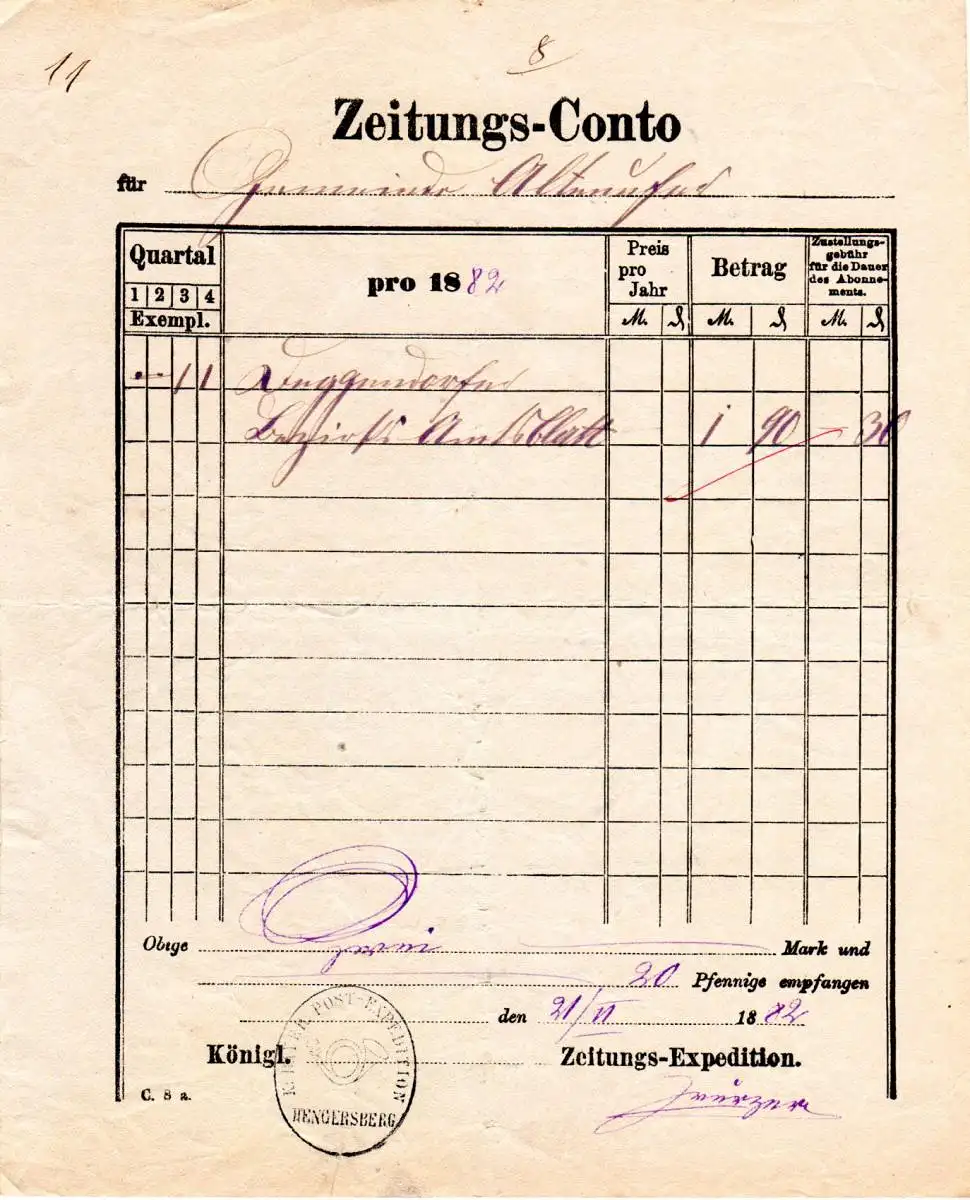 11
8
Zeitungs-Conto
für Gemeinde Altenufer
Quartal
1 2 3 4
Exempl.
pro 1882
Preis
pro
Jahr
Betrag
Zustellungs-
gebühr
für die Dauer
des Abonne-
ments.
M. ₰ M. ₰ M. ₰
— 1 1 Deggendorfer
Bezirks Amtsblatt 1 90 — 30
Obige zwei Mark und
20 Pfennige empfangen
den 21/VI 1882
Königl. Zeitungs-Expedition.
K. BAYER. POST-EXPEDITION
HENGERSBERG
C. 8 a.